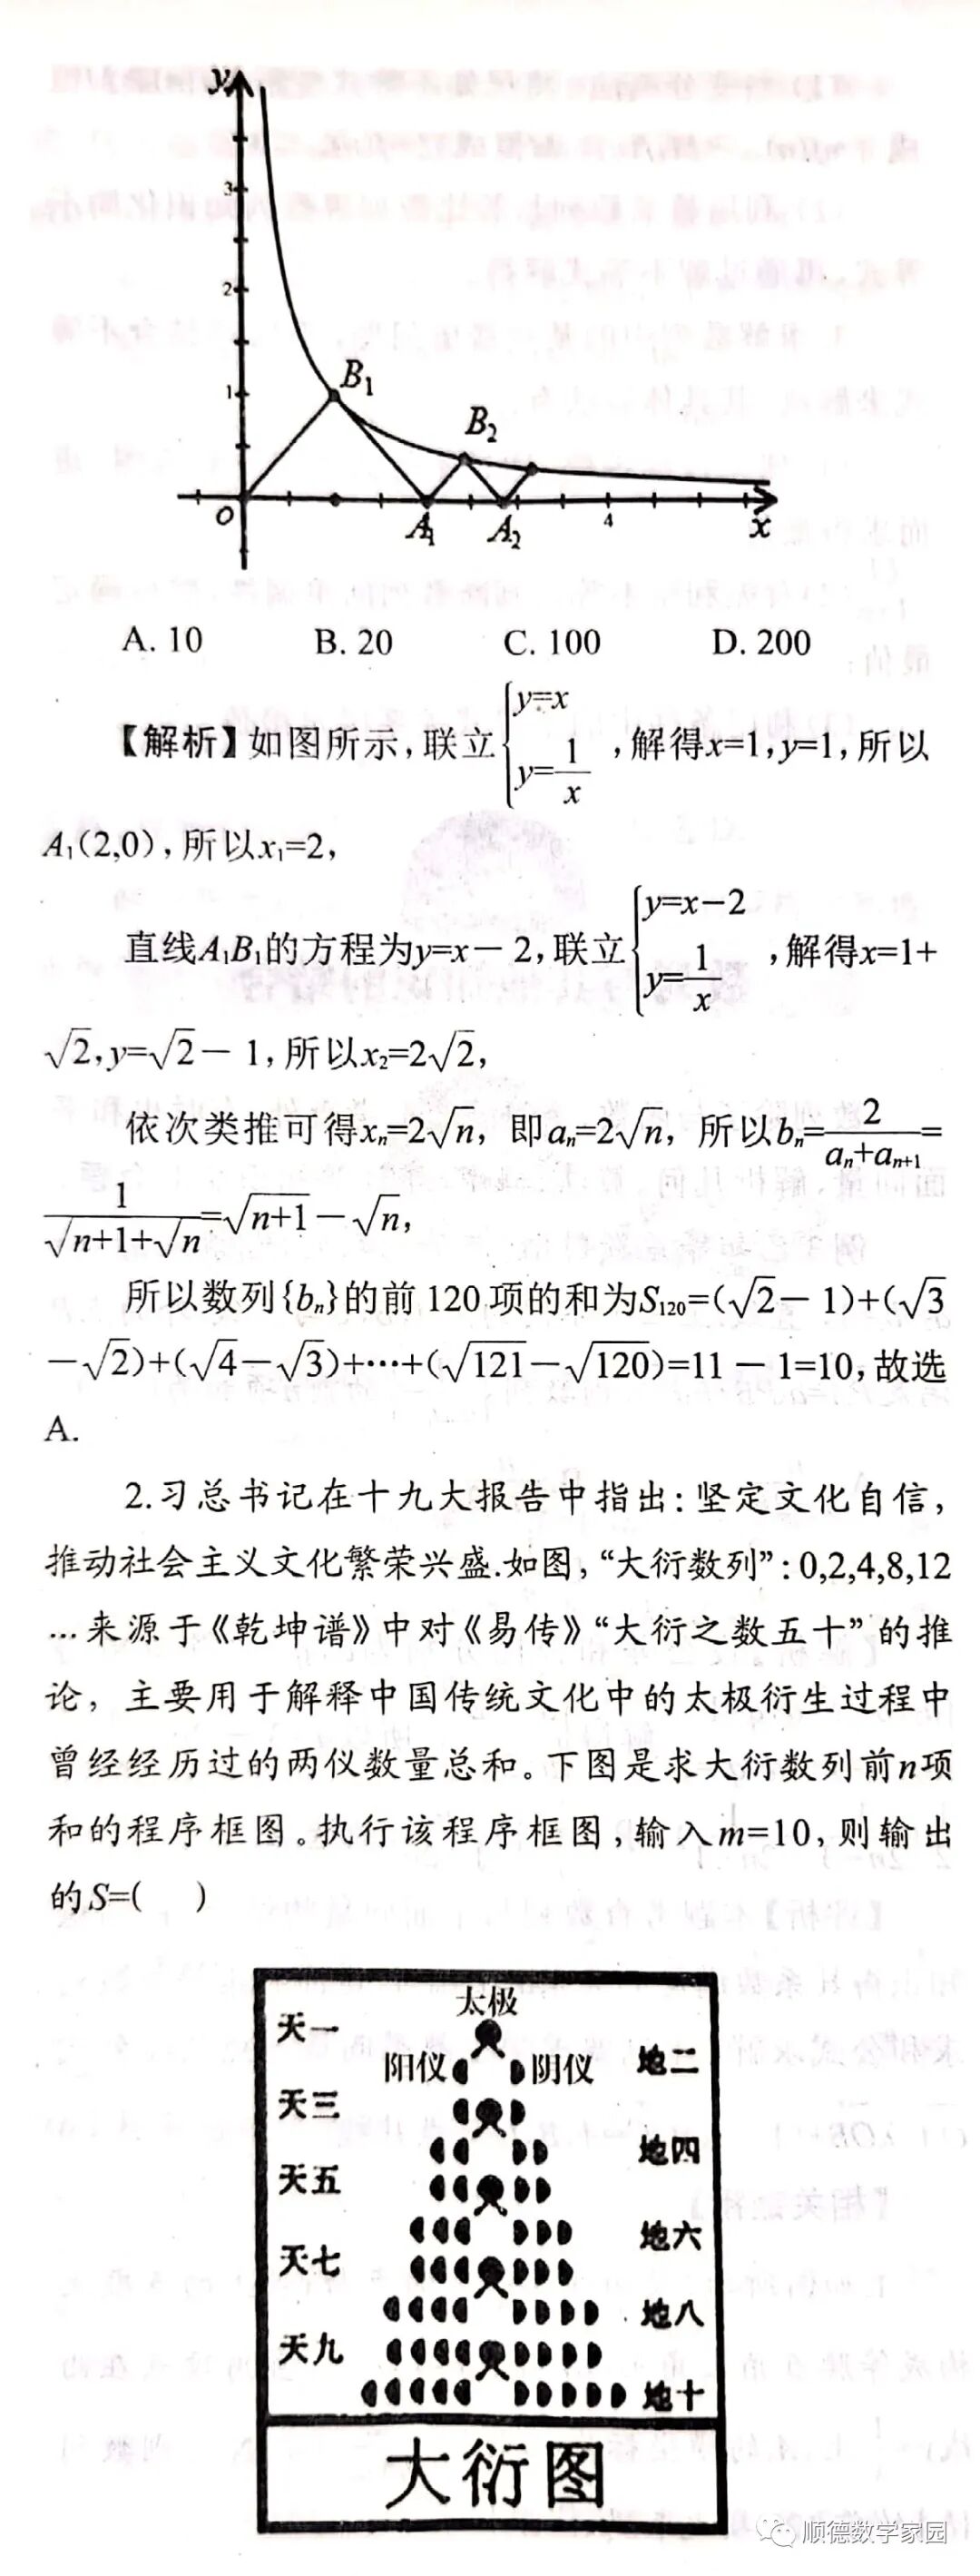 y
3
2
1
B₁
B₂
O
A₁
A₂
4
x
A. 10 B. 20 C. 100 D. 200
【解析】如图所示,联立{y=x, y=1/x,解得x=1,y=1,所以
A₁(2,0),所以x₁=2,
直线A₁B₁的方程为y=x－2,联立{y=x－2, y=1/x,解得x=1+
√2,y=√2－1,所以x₂=2√2,
依次类推可得xₙ=2√n, 即aₙ=2√n, 所以bₙ=2/(aₙ+aₙ₊₁)=
1/(√(n+1)+√n)=√(n+1)－√n,
所以数列{bₙ}的前120项的和为S₁₂₀=(√2－1)+(√3
－√2)+(√4－√3)+…+(√121－√120)=11－1=10,故选
A.
2.习总书记在十九大报告中指出:坚定文化自信,
推动社会主义文化繁荣兴盛.如图,“大衍数列”:0,2,4,8,12
…来源于《乾坤谱》中对《易传》“大衍之数五十”的推
论, 主要用于解释中国传统文化中的太极衍生过程中
曾经经历过的两仪数量总和。下图是求大衍数列前n项
和的程序框图。执行该程序框图,输入m=10,则输出
的S=( )
太极
天一
阳仪 阴仪 地二
天三
地四
天五
地六
天七
地八
天九
地十
大衍图
顺德数学家园